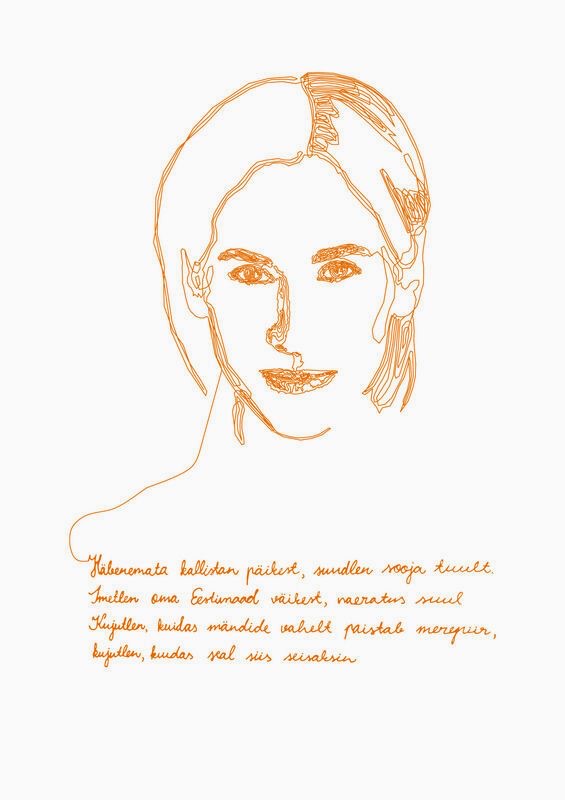 Häbenemata kallistan päikest, suudlen sooja tuult.
Imetlen oma Eestimaad väikest, naeratus suul
Kujutlen, kuidas mändide vahelt paistab merepiir,
kujutlen, kuidas seal siis seisaksin